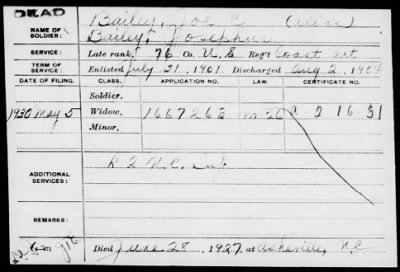 DEAD
NAME OF SOLDIER: Bailey, Joe C. (alias)
Bailey, Josephus
SERVICE: Late rank, 76 Co. U.S. Reg't Coast Art
TERM OF SERVICE: Enlisted July 21, 1901 Discharged Aug 2, 1904
DATE OF FILING. CLASS. APPLICATION NO. LAW. CERTIFICATE NO.
Soldier.
1930 May 5 Widow, 1667263 A 2 16 31
Minor.
ADDITIONAL SERVICES: N.C. Inf
REMARKS:
Died June 28, 1927, at Asheville, N.C.